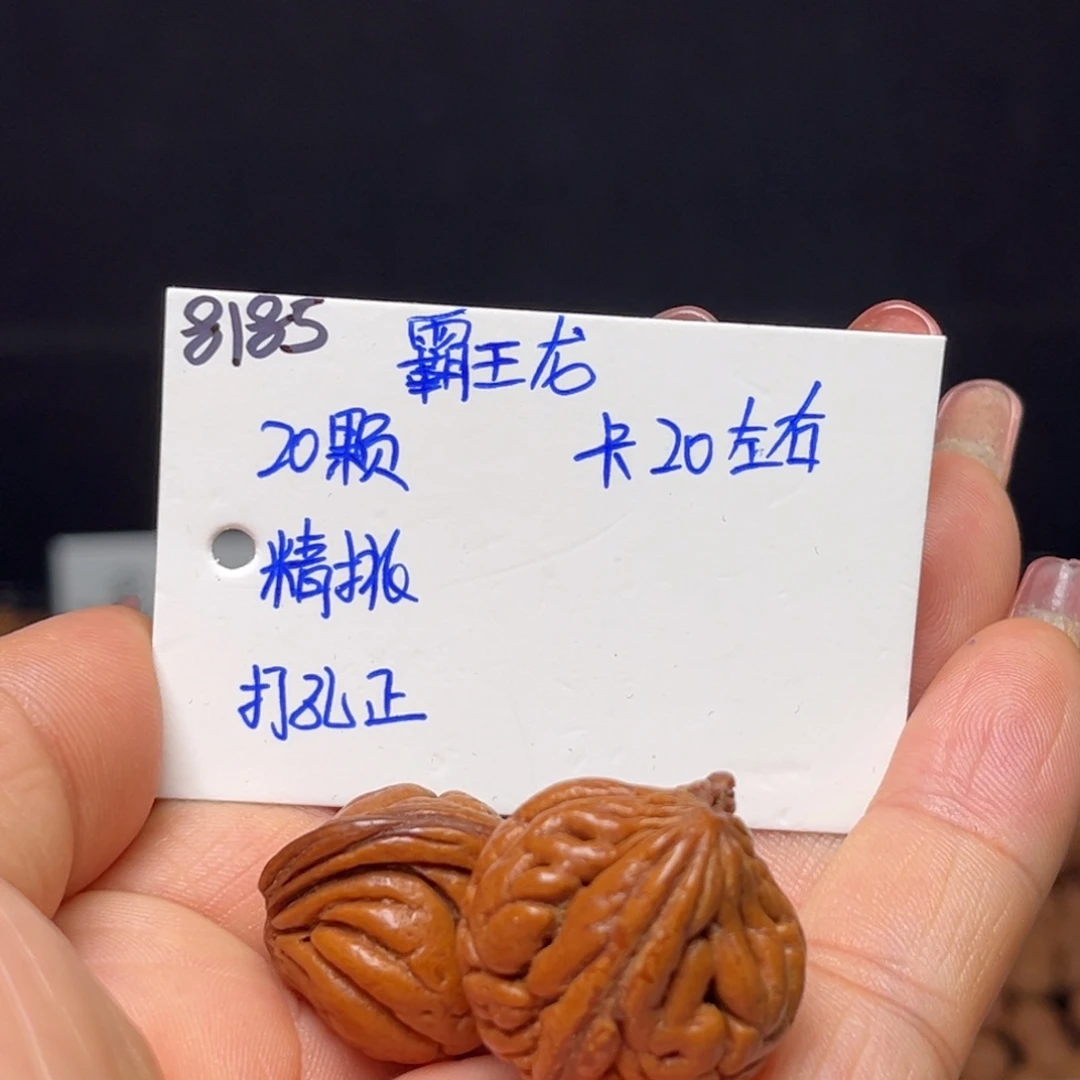 8185
霸王龙
20颗 卡20左右
精挑
打孔正